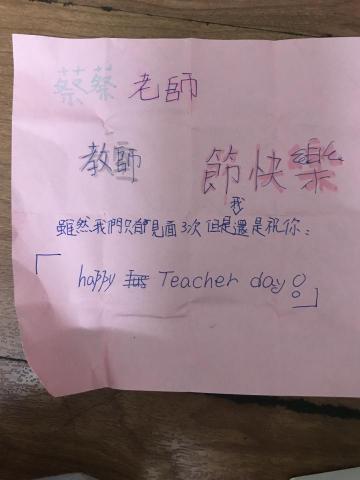 蔡蔡老師
教師 節快樂
雖然我們只能見面3次但是我還是祝你：
「happy Teacher day！」